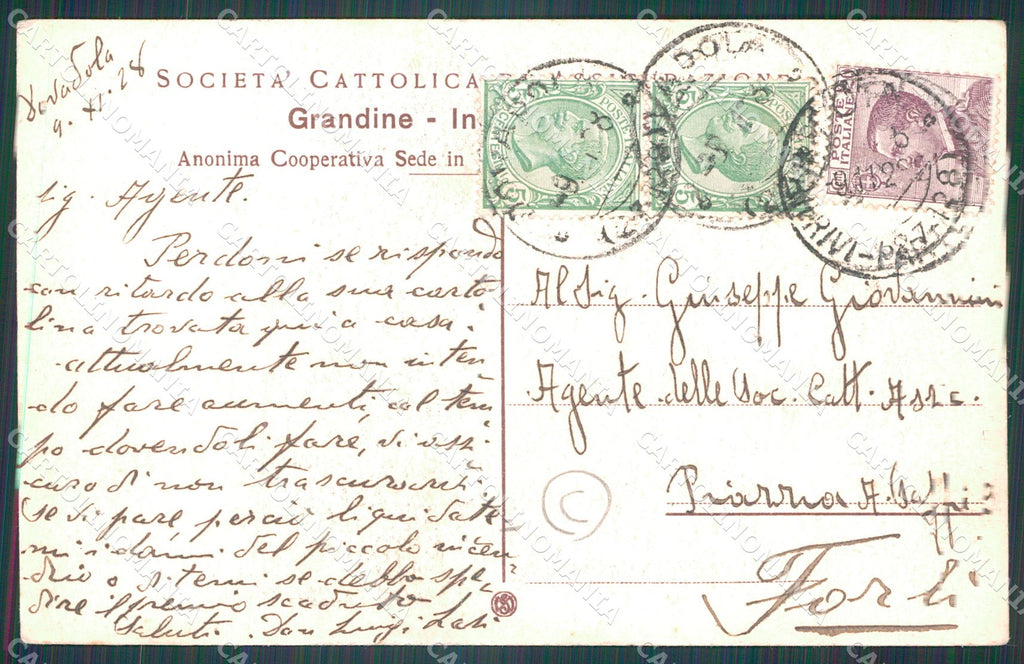 Dovadola
9. XI. 28
SOCIETA' CATTOLICA
Grandine - In
Anonima Cooperativa Sede in
Sig. Agente.
Perdoni se rispondo
con ritardo alla sua carto
lina trovata qui a casa.
attualmente non inten
do fare aumenti, col tem
po dovendoli fare, vi assi
curo di non trascurarvi
se vi pare perciò liquidate
mi i danni del piccolo incen
dio o se debbo spe
dire il premio scaduto
Saluti. Don Luigi
Al Sig. Giuseppe Giovannini
Agente delle Soc. Catt. Assic.
Piazza A. Saffi
Forlì
POSTE ITALIANE
CARTOLINOMANIA